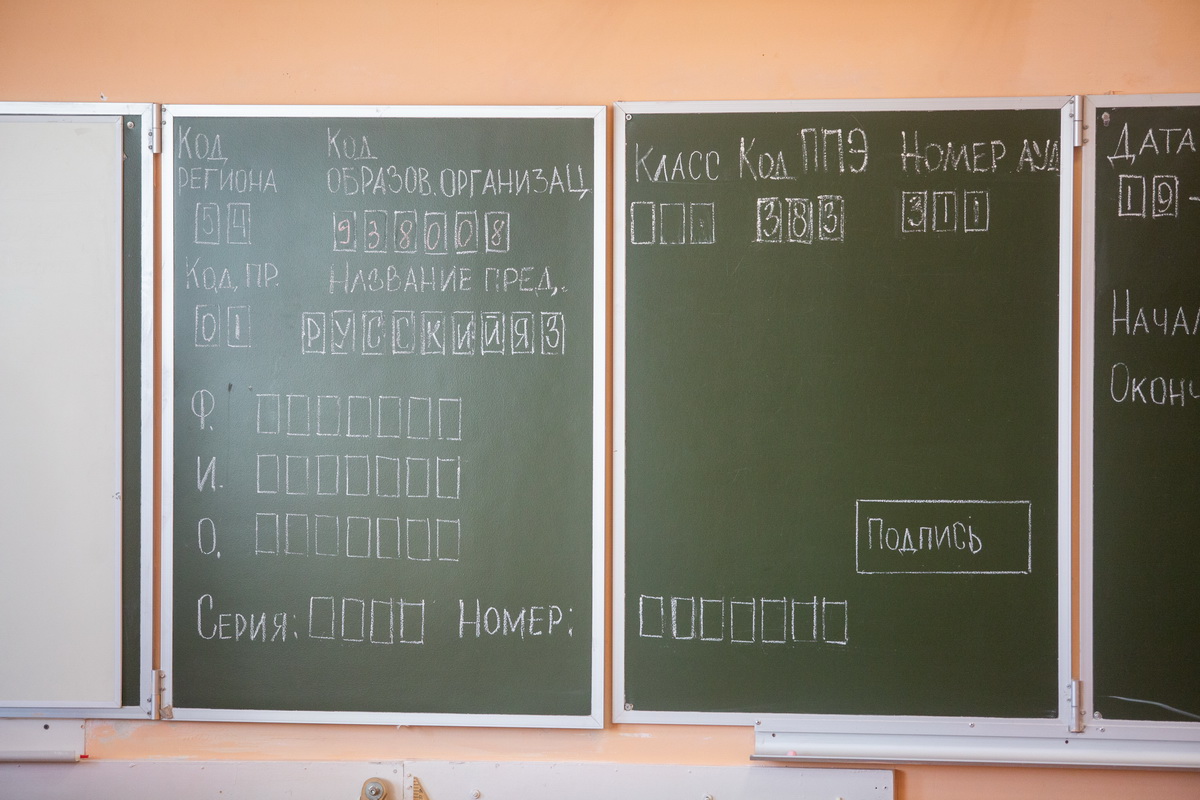 Код
региона
54
Код
образов. организац
938008
Код. пр.
01
Название пред..
РУССКИЙЯЗ
Ф.
И.
О.
Серия:
Номер:
Класс
Код ППЭ
383
Номер ауд
311
Подпись
Дата
19
Начал
Оконч